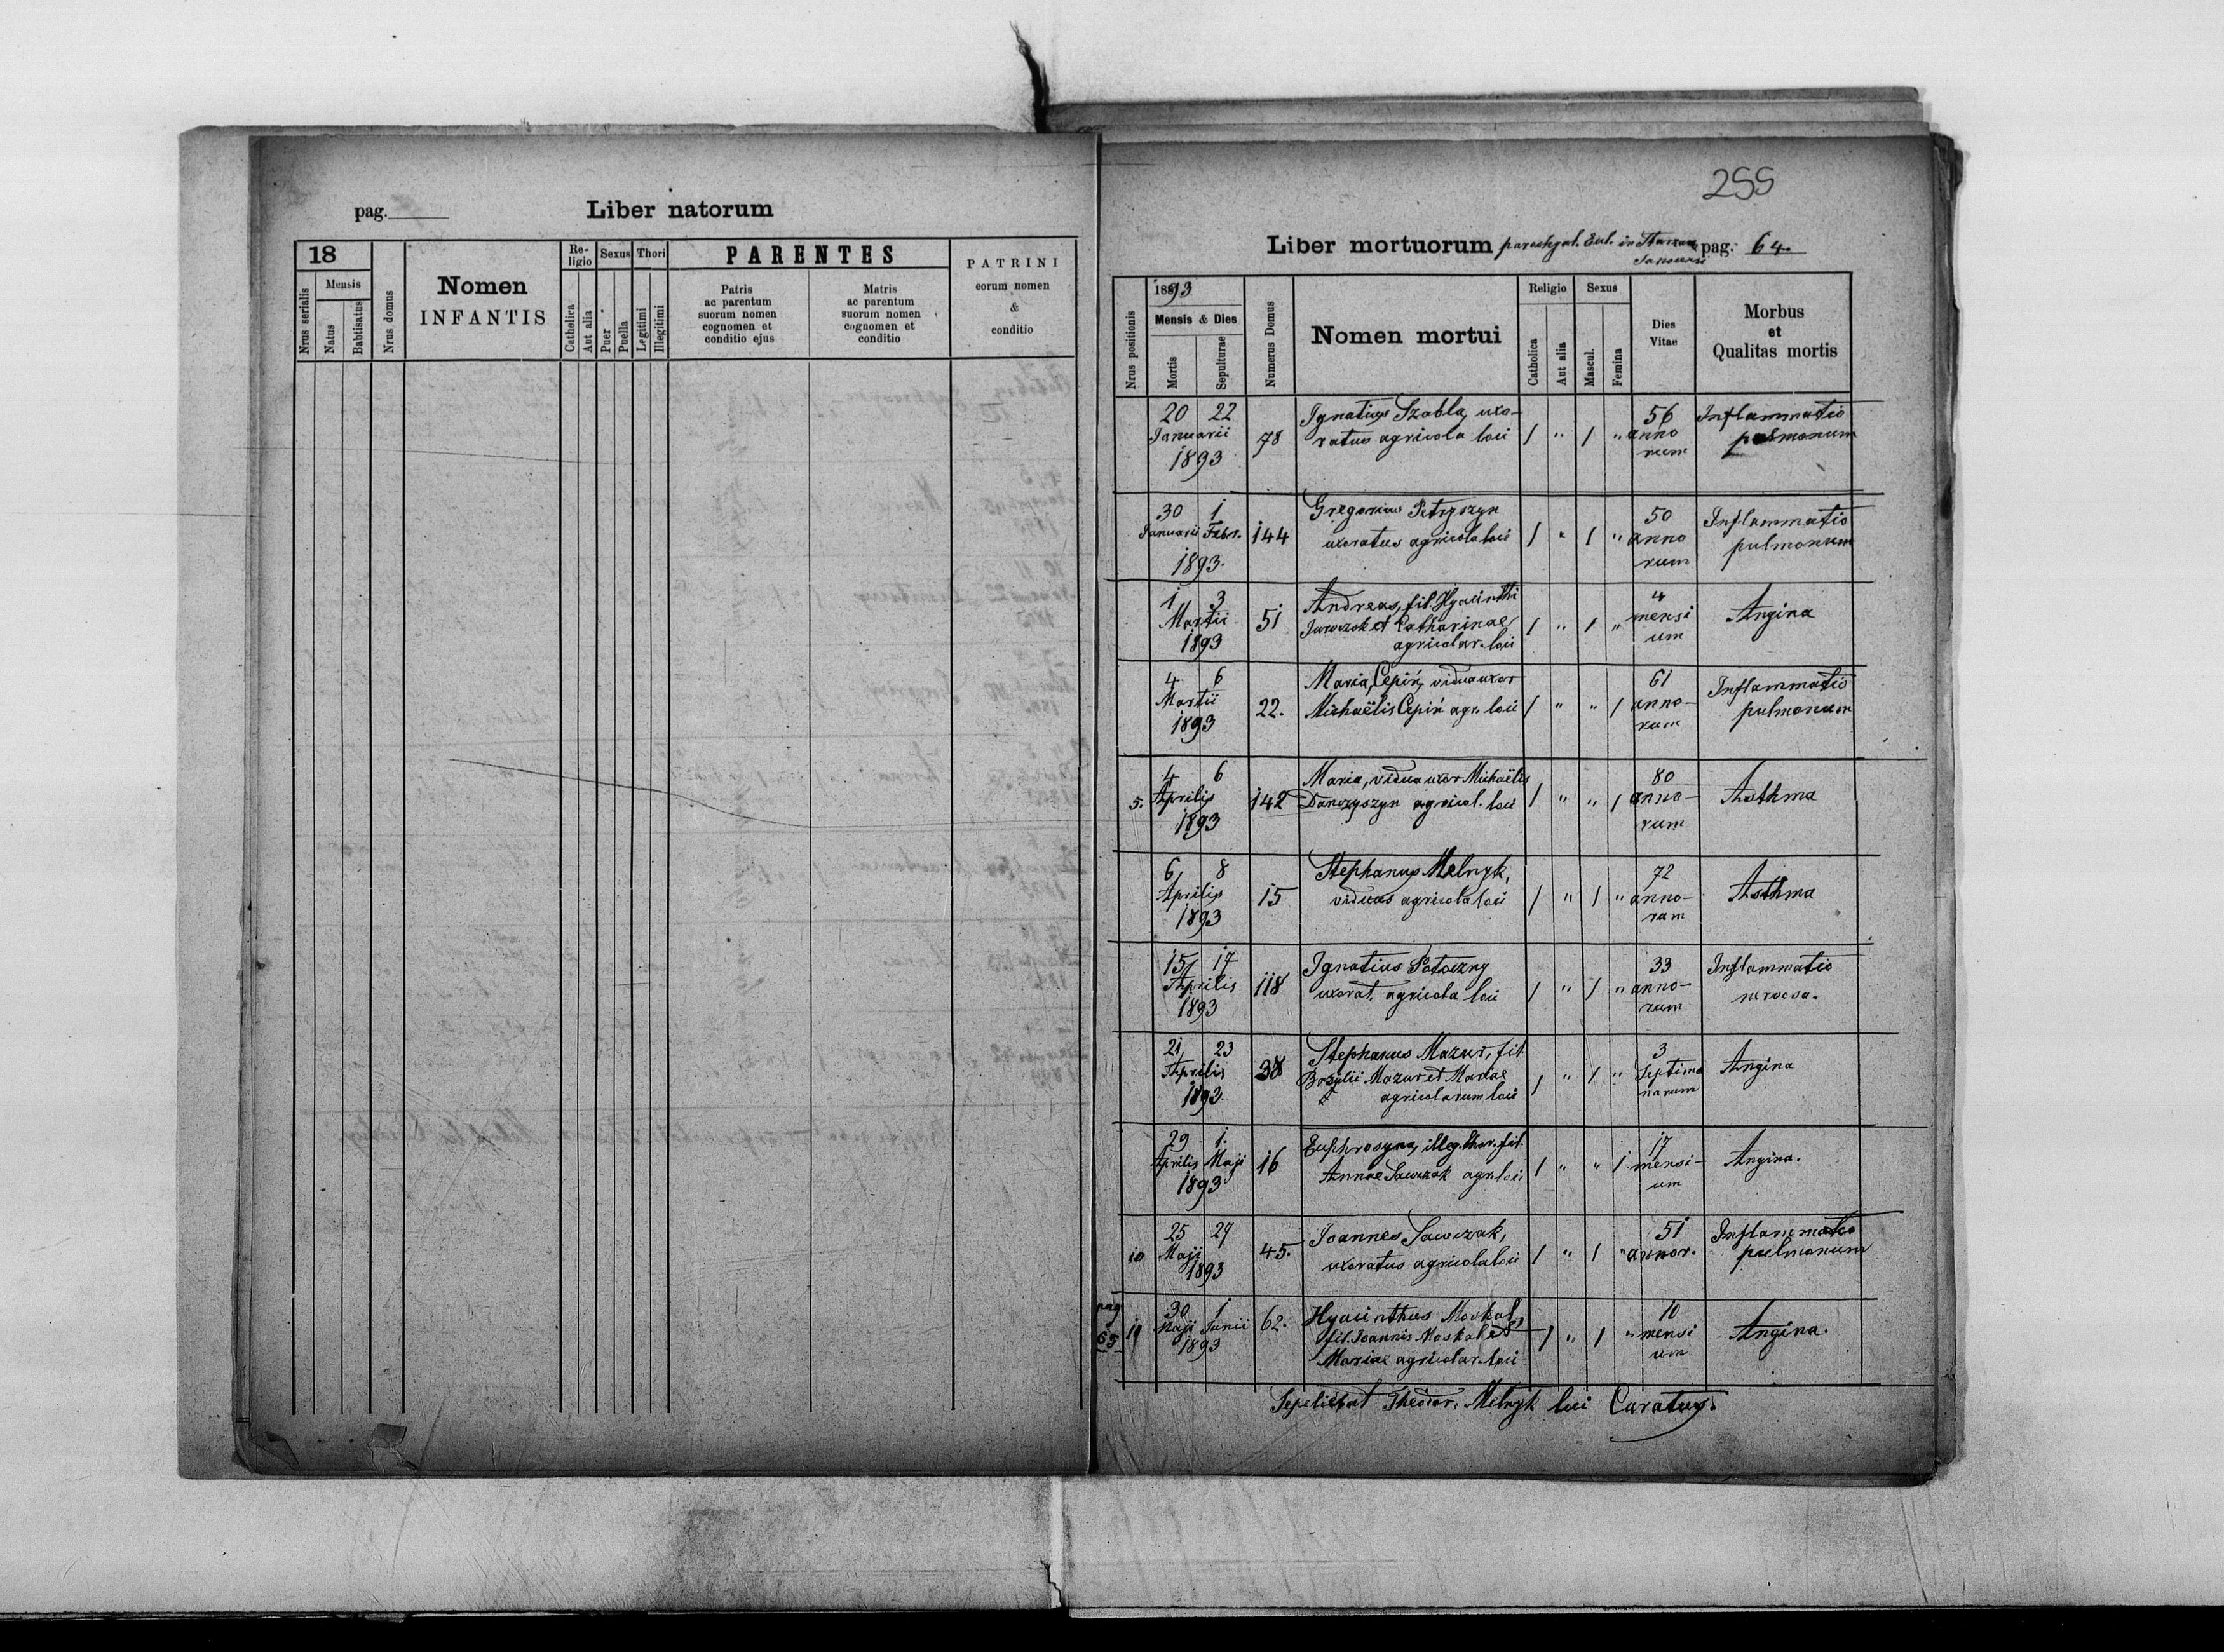 pag.
Liber natorum
18
Mensis
Nrus serialis
Natus
Babtisatus
Nrus domus
Nomen
INFANTIS
Re-
ligio
Catholica
Aut alia
Sexus
Puer
Puella
Thori
Legitimi
Illegitimi
PARENTES
Patris
ac parentum
suorum nomen
cognomen et
conditio ejus
Matris
ac parentum
suorum nomen
cognomen et
conditio
PATRINI
eorum nomen
&
conditio
255
Liber mortuorum parochjal. Eccl. in pag. 64.
Nrus positionis
1893
Mensis & Dies
Mortis
Sepulturae
Numerus Domus
Nomen mortui
Religio
Catholica
Aut alia
Sexus
Mascul.
Femina
Dies
Vitae
Morbus
et
Qualitas mortis
20 22 Ignatius Szabla, uxo- 56 Inflammatio
Januarii 78 ratus agricola loci / " / " anno pulmonum
1893 rum
30 1 Gregorius Petryszyn 50 Inflammatio
Januarii Febr. 144 uxoratus agricola loci / " / " anno pulmonum
1893. rum
1 3 Andreas, fil. Hyacinthi 4
Martii 51 et Catharinae, / " / " mensi Angina
1893 agricolar. loci um
4 6 Maria, Cepiń, vidua uxor 61 Inflammatio
Martii 22. Michaëlis Cepiń agr. loci / " " / anno- pulmonum
1893 rum
4 6 Maria, vidua uxor Michaëlis 80
5. Aprilis 142 Danczyszyn agricol. loci / " " / anno- Asthma
1893 rum
6 8 Stephanus Melnyk, 72
Aprilis 15 viduus agricola loci / " / " anno- Asthma
1893 rum
15 17 Ignatius Potoczny 33 Inflammatio
Aprilis 118 uxorat. agricola loci / " / " anno-
1893 rum
21 23 Stephanus Mazur, fil. 3
Aprilis 38 Bazylii Mazur et Mariae / " / " septima Angina
1893. agricolarum loci narum
29 1. Euphrosyna, illeg. thor. fil. 17
Aprilis Maji 16 Annae Sawczak agr. loci / " " / mensi- Angina.
1893 um
25 27 Joannes Sawczak, 51 Inflammatio
10 Maji 45. uxoratus agricola loci / " / " annor. pulmonum
1893
pag 30 1 62. Hyacinthus Moskal, 10
65 11 Maji Junii fil. Joannis Moskal et / " / " mensi Angina.
1893 Mariae agricolar. loci um
Sepeliebat Theodor. Melnyk loci Curatus.